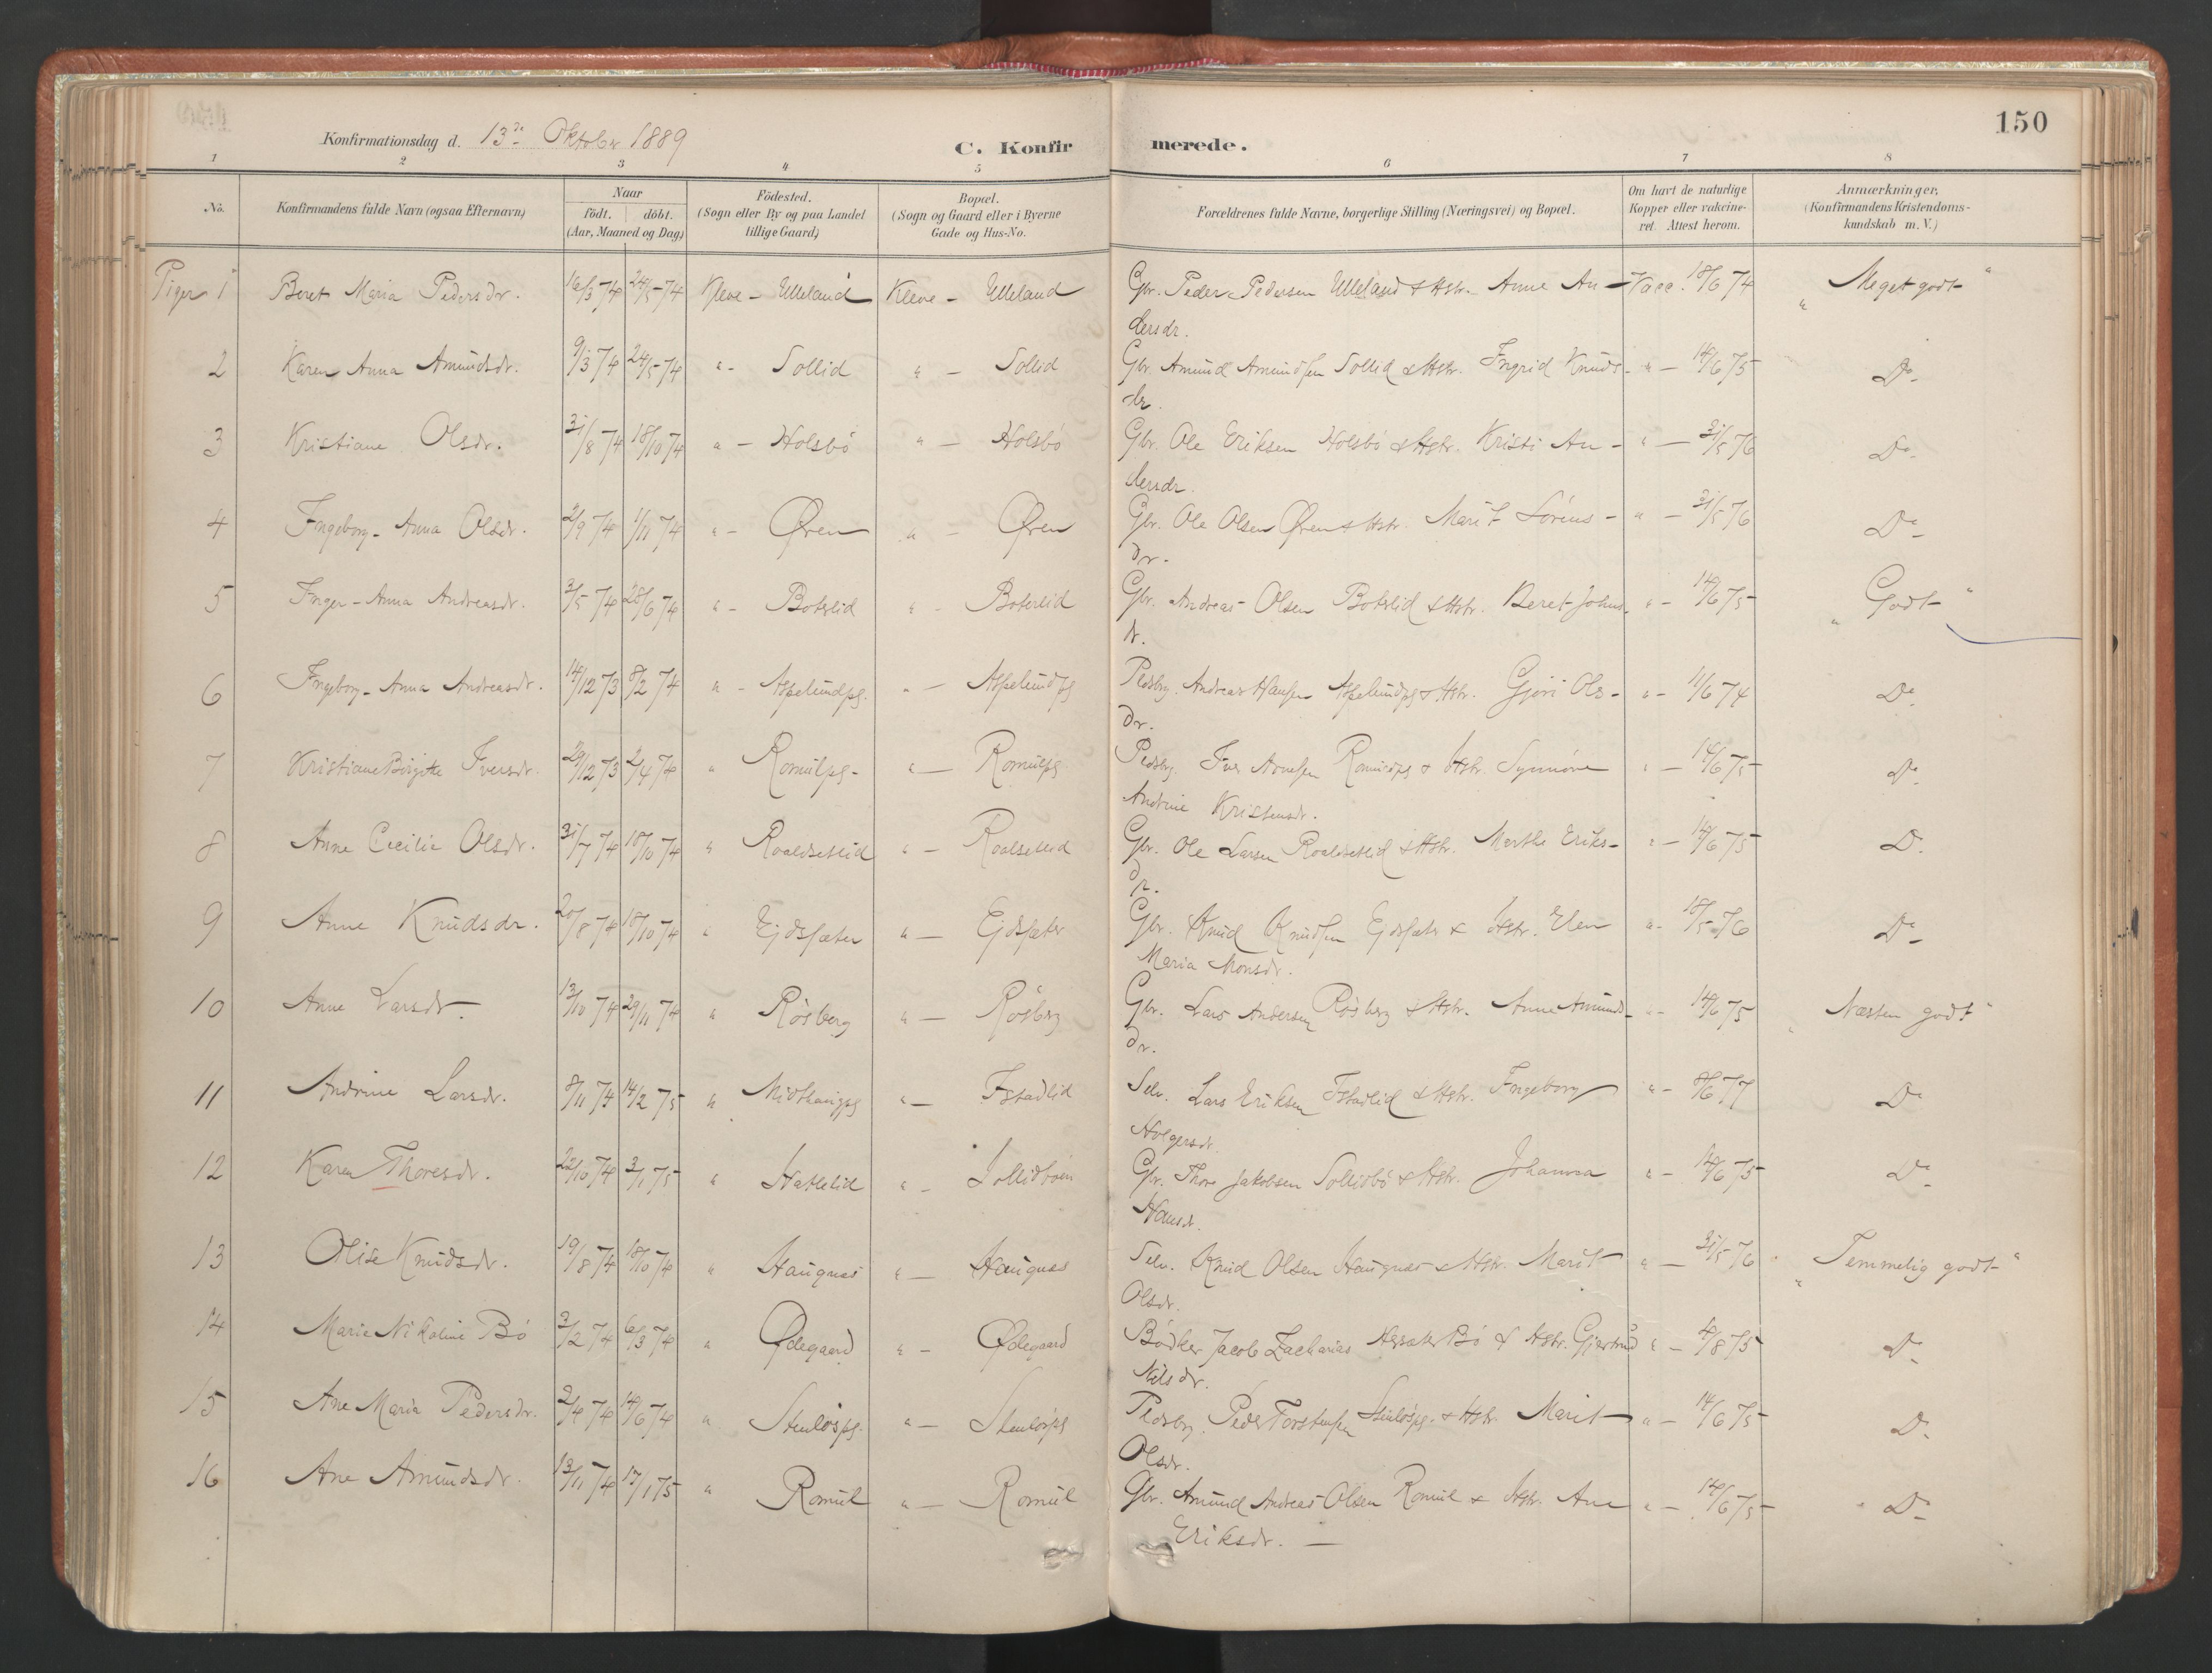 150
Konfirmationsdag d. 13de Oktober 1889
C. Konfirmerede.
1 2 3 4 5 6 7 8
No. Konfirmandens fulde Navn (ogsaa Efternavn) Naar födt. döbt. (Aar, Maaned og Dag) Födested. (Sogn eller By og paa Landet tillige Gaard) Bopæl. (Sogn og Gaard eller i Byerne Gade og Hus-No. Forældrenes fulde Navne, borgerlige Stilling (Næringsvei) og Bopæl. Om havt de naturlige Kopper eller vakcineret. Attest herom. Anmærkninger. (Konfirmandens Kristendomskundskab m. V.)
Piger 1 Beret Maria Pedersdr. 16/3 74 24/5 74 Kleve - Ulleland Kleve - Ulleland Gbr. Peder Pedersen Ulleland & Hstr. Anne An- Vacc. 18/6 74 "Meget godt"
dersdr.
2 Karen Anna Amundsdr. 9/3 74 24/5 74 " - Sollid " - Sollid Gbr. Amund Amundsen Sollid & Hstr. Ingrid Knuds- " - 14/6 75 Do
dr.
3 Kristiane Olsdr. 31/8 74 18/10 74 " - Holsbö " - Holsbö Gbr. Ole Eriksen Holsbö & Hstr. Kristi An- " - 31/5 76 Do
dersdr.
4 Ingeborg-Anna Olsdr. 2/9 74 1/11 74 " - Øren " - Øren Gbr. Ole Olsen Øren & Hstr. Marit Sörens- " - 31/5 76 Do
dr.
5 Inger-Anna Andreasdr. 3/5 74 28/6 74 " - Boterlid " - Boterlid Gbr. Andreas Olsen Boterlid & Hstr. Beret Johns- " - 14/6 75 "Godt"
dr.
6 Ingeborg-Anna Andreasdr. 14/12 73 8/2 74 " - Aspelundpg. " - Aspelundpg Pladsbrg. Andreas Hansen Aspelundpg & Hstr. Gjöri Ols- " - 11/6 74 Do
dr.
7 Kristiane Birgitte Iversdr. 29/12 73 2/4 74 " Romulpg- " - Romulpg Pladsbrg. Iver Arnesen Romulpg & Hstr. Synnöve " - 14/6 75 Do
Andrine Kristensdr.
8 Anne Cecilie Olsdr. 31/7 74 18/10 74 " Roaldsetlid " - Roalsetlid Gbr. Ole Larsen Roaldsetlid & Hstr. Marthe Eriks- " - 14/6 75 Do
dr.
9 Anne Knudsdr. 20/8 74 18/10 74 " Ejdsæter " - Ejdsæter Gbr. Knud Knudsen Ejdsæter & Hstr. Elen " - 18/5 76 Do
Maria Monsdr.
10 Anne Larsdr. 13/10 74 29/11 74 " Rösberg " - Rösberg Gbr. Lars Andersen Rösberg & Hstr. Anne Amunds- " - 14/6 75 "Næsten godt"
dr.
11 Andrine Larsdr. 8/11 74 14/2 75 " Midthaugpg " - Istadlid Selv. Lars Eriksen Istadlid & Hstr. Ingeborg " - 8/6 77 Do
Holgersdr.
12 Karen Thoresdr. 22/10 74 3/1 75 " Hatlelid " - Sollidböen Gbr. Thore Jakobsen Sollidbö & Hstr. Johanna " - 14/6 75 Do
Hansdr.
13 Olise Knudsdr. 19/8 74 18/10 74 " Haugnæs " - Haugnæs Selv. Knud Olsen Haugnæs & Hstr. Marit " - 31/5 76 "Temmelig godt"
Olsdr.
14 Marie Nikoline Bö 3/2 74 6/3 74 " Ødegaard " - Ødegaard Bödker Jacob Zacharias Bö & Hstr. Gjertrud " - 4/8 75 Do
Nilsdr.
15 Ane Maria Pedersdr. 2/4 74 14/6 74 " Stenlöspg. " - Stenlöspg Pladsbrg. Peder Torstensen Stenlöspg. & Hstr. Marit " - 14/6 75 Do
Olsdr.
16 Ane Amundsdr. 13/11 74 17/1 75 " Romül " - Romül Gbr. Amund Andreas Olsen Romül & Hstr. Ane " - 14/6 75 " Do
Eriksdr. -